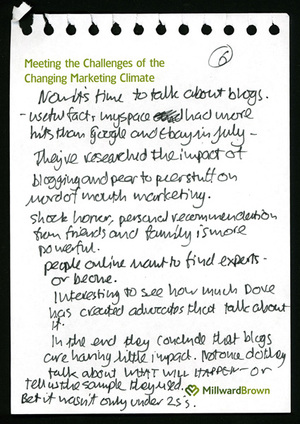 Meeting the Challenges of the
Changing Marketing Climate
6
Now it's time to talk about blogs.
- useful fact, myspace had more
hits than google and Ebay in July -
They've researched the impact of
blogging and peer to peer stuff on
word of mouth marketing.
shock horror, personal recommendation
from friends and family is more
powerful.
people online want to find experts -
or be one.
Interesting to see how much Dove
has created advocates that talk about
it.
In the end they conclude that blogs
are having little impact. Not once do they
talk about WHAT WILL HAPPEN - or
tell us the sample they used.
Bet it wasn't only under 25's.
MillwardBrown